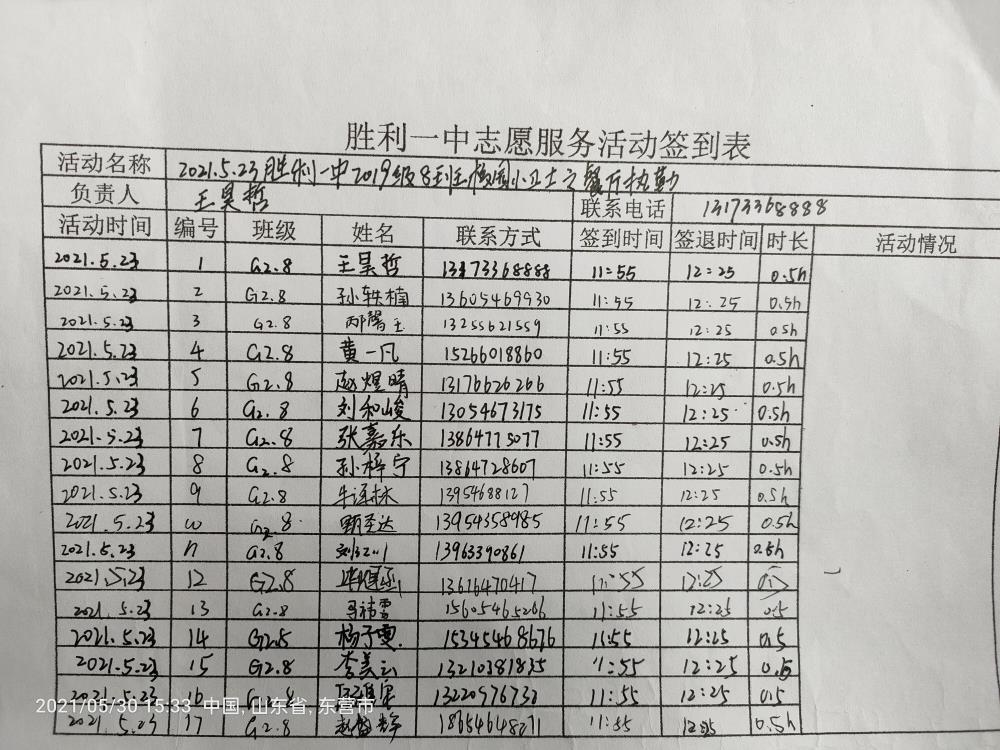 胜利一中志愿服务活动签到表
活动名称 2021.5.23胜利一中2019级8班校园小卫士之餐厅执勤
负责人 王昊哲 联系电话 13173368888
活动时间 编号 班级 姓名 联系方式 签到时间 签退时间 时长 活动情况
2021.5.23 1 G2.8 王昊哲 13173368888 11:55 12:25 0.5h
2021.5.23 2 G2.8 孙轶楠 13605469930 11:55 12:25 0.5h
2021.5.23 3 G2.8 13255621559 11:55 12:25 0.5h
2021.5.23 4 G2.8 黄一凡 15266018860 11:55 12:25 0.5h
2021.5.23 5 G2.8 赵煜晴 13176626266 11:55 12:25 0.5h
2021.5.23 6 G2.8 刘和峻 13054673175 11:55 12:25 0.5h
2021.5.23 7 G2.8 张嘉乐 13864775077 11:55 12:25 0.5h
2021.5.23 8 G2.8 孙梓宁 13864728607 11:55 12:25 0.5h
2021.5.23 9 G2.8 13954688127 11:55 12:25 0.5h
2021.5.23 10 G2.8 甄圣达 13954358985 11:55 12:25 0.5h
2021.5.23 11 G2.8 13963390861 11:55 12:25 0.5h
2021.5.23 12 G2.8 13616470417 11:55 12:25
2021.5.23 13 G2.8 15605465266 11:55 12:25 0.5
2021.5.23 14 G2.8 杨子雯 15345468676 11:55 12:25 0.5
2021.5.23 15 G2.8 李美云 13210381835 11:55 12:25 0.5
2021.5.23 16 G2.8 13220976732 11:55 12:25 0.5
2021.5.23 17 G2.8 18654648271 11:55 12:25 0.5h
2021/05/30 15:33 中国, 山东省, 东营市